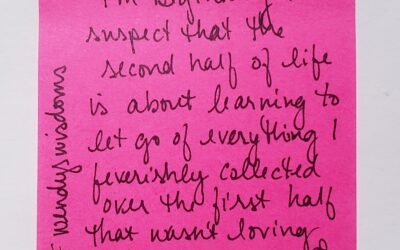 I'm beginning to
suspect that the
second half of life
is about learning to
let go of everything I
feverishly collected
over the first half
that wasn't loving
wendyswisdoms